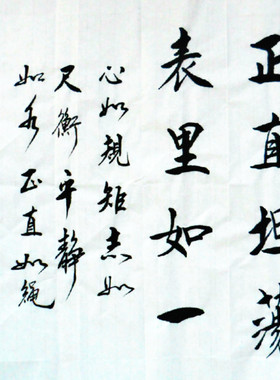 正直坦荡
表里如一
心如規矩志如
尺衡平静
如水正直如繩